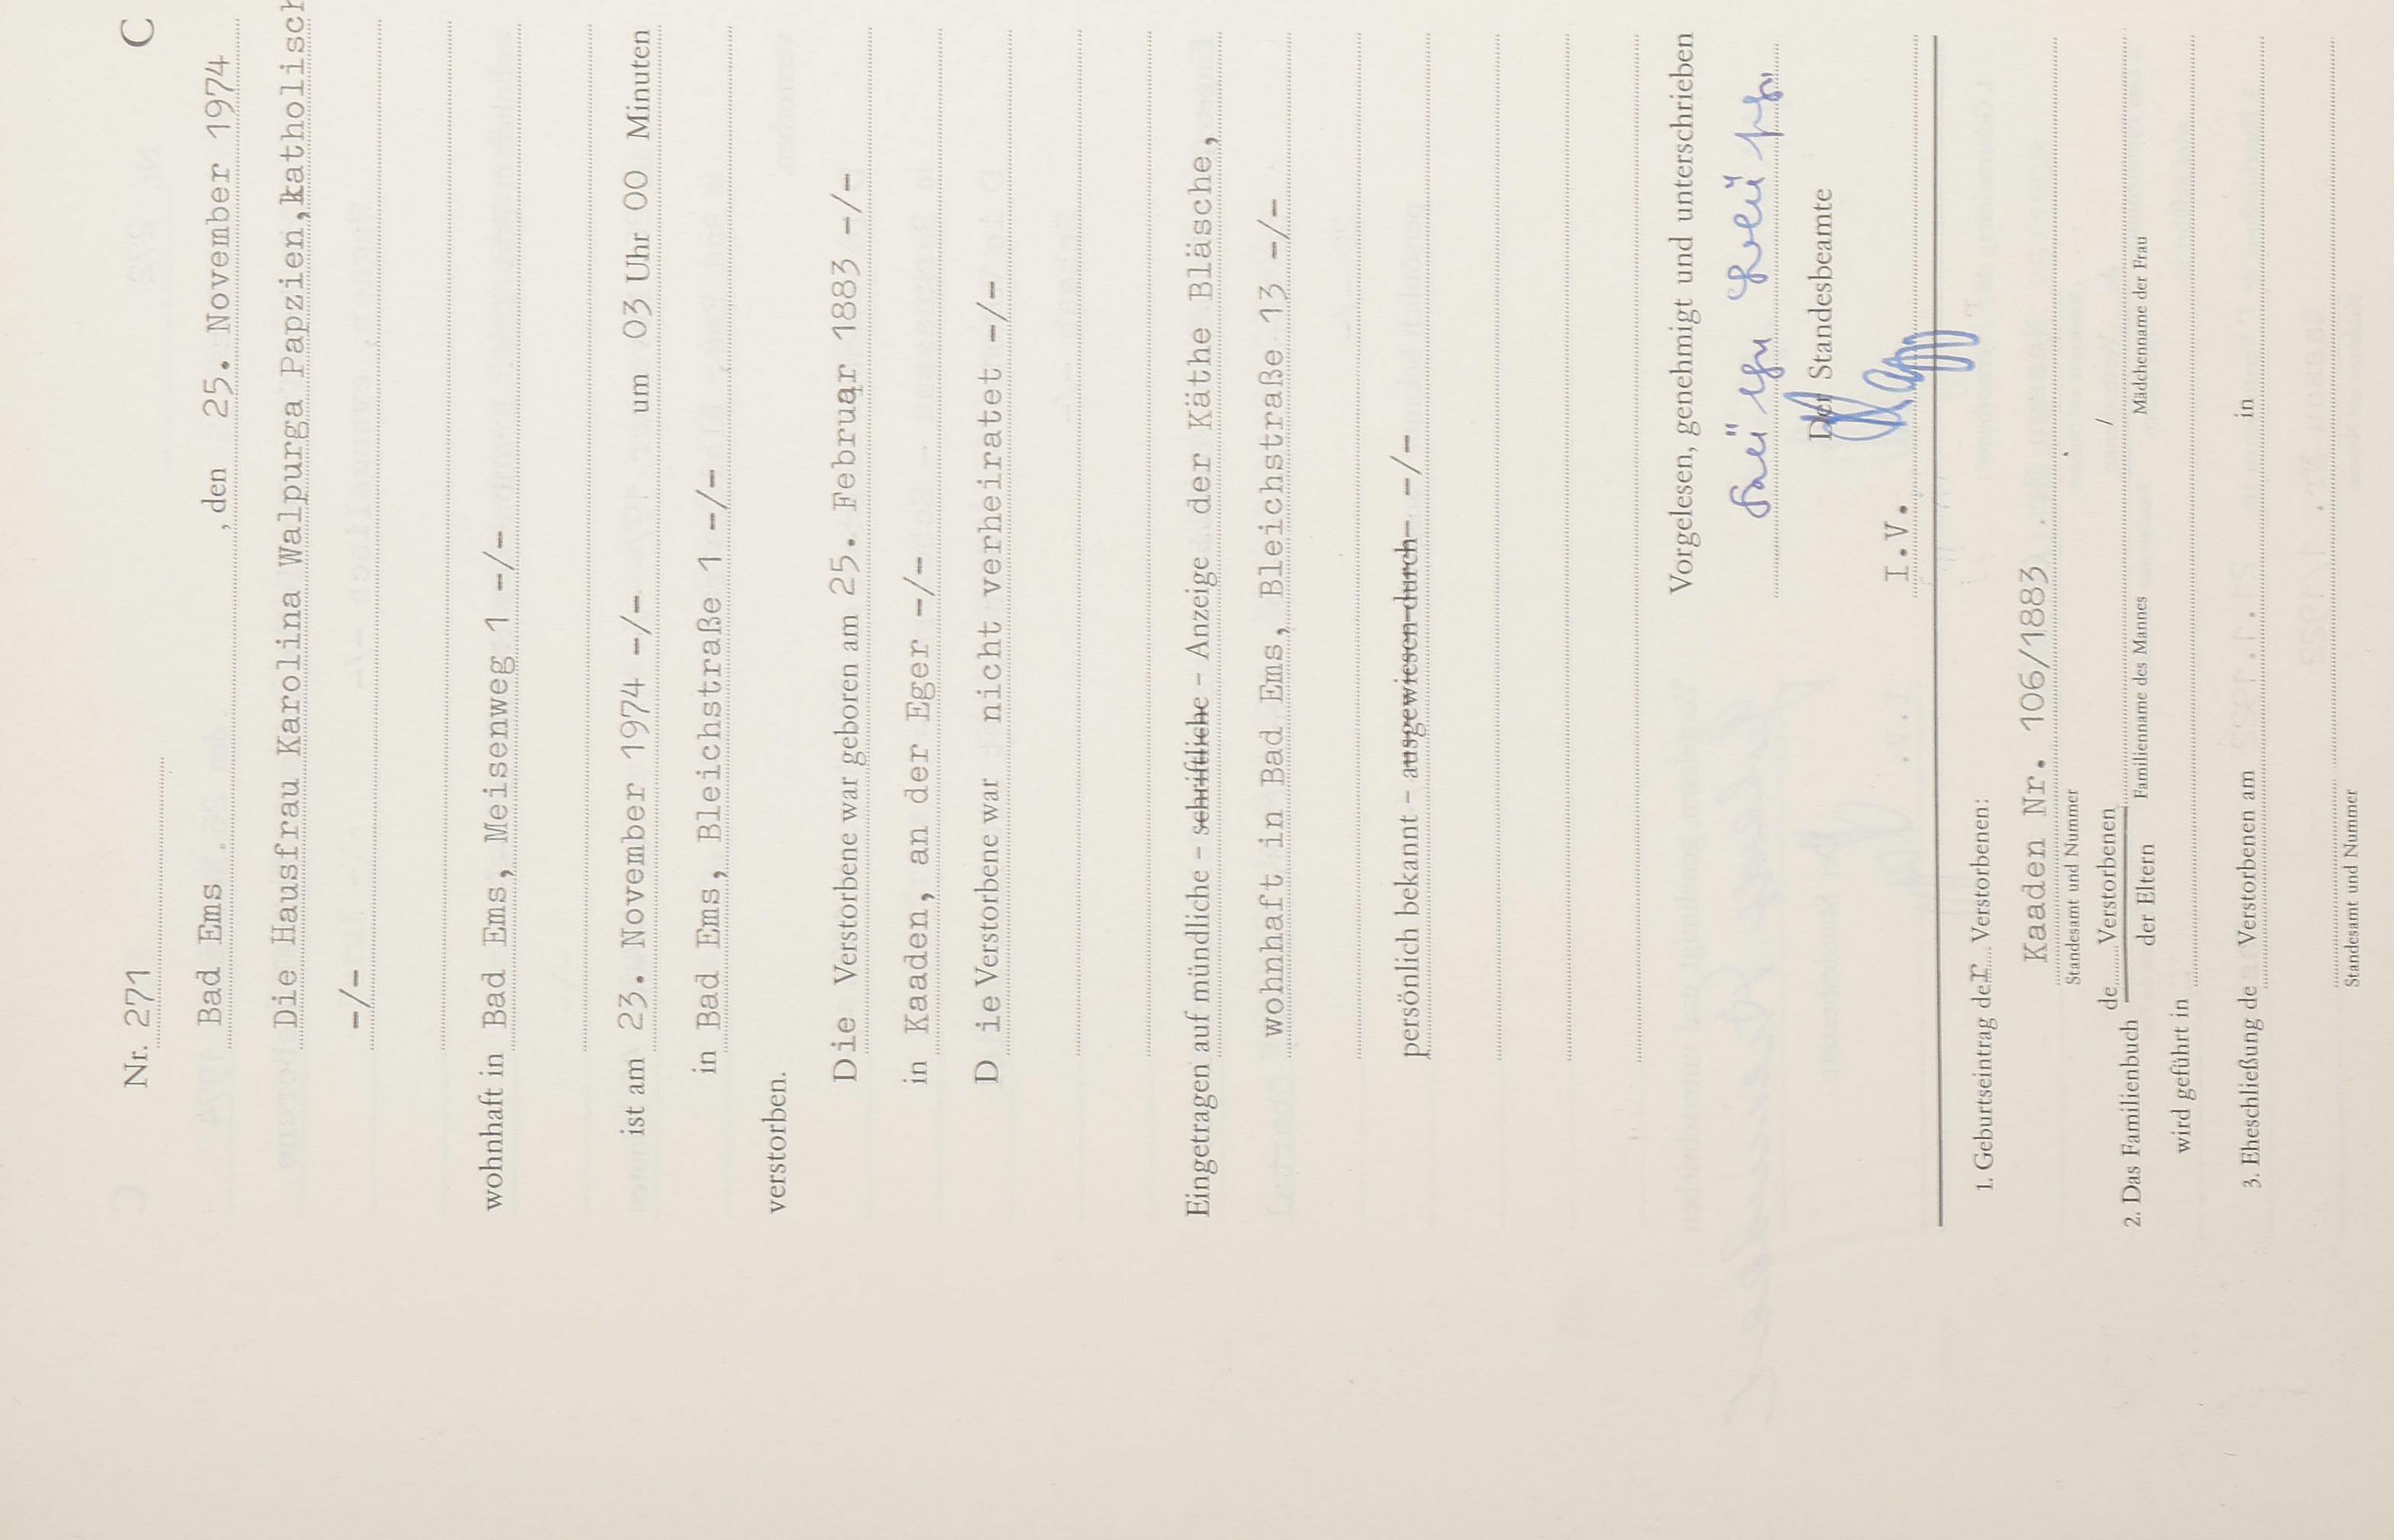 Nr. 271 C
Bad Ems , den 25. November 1974
Die Hausfrau Karolina Walpurga Papzien, katholisch
-/-
wohnhaft in Bad Ems, Meisenweg 1 -/-
ist am 23. November 1974 -/- um 03 Uhr 00 Minuten
in Bad Ems, Bleichstraße 1 -/-
verstorben.
Die Verstorbene war geboren am 25. Februar 1883 -/-
in Kaaden, an der Eger -/-
Die Verstorbene war nicht verheiratet -/-
Eingetragen auf mündliche - schriftliche - Anzeige der Käthe Bläsche,
wohnhaft in Bad Ems, Bleichstraße 13 -/-
persönlich bekannt - ausgewiesen durch - -/-
Vorgelesen, genehmigt und unterschrieben
Der Standesbeamte
I.V.
1. Geburtseintrag der Verstorbenen:
Kaaden Nr. 106/1883
Standesamt und Nummer
2. Das Familienbuch de Verstorbenen /
der Eltern Familienname des Mannes Mädchenname der Frau
wird geführt in
3. Eheschließung de Verstorbenen am in
Standesamt und Nummer